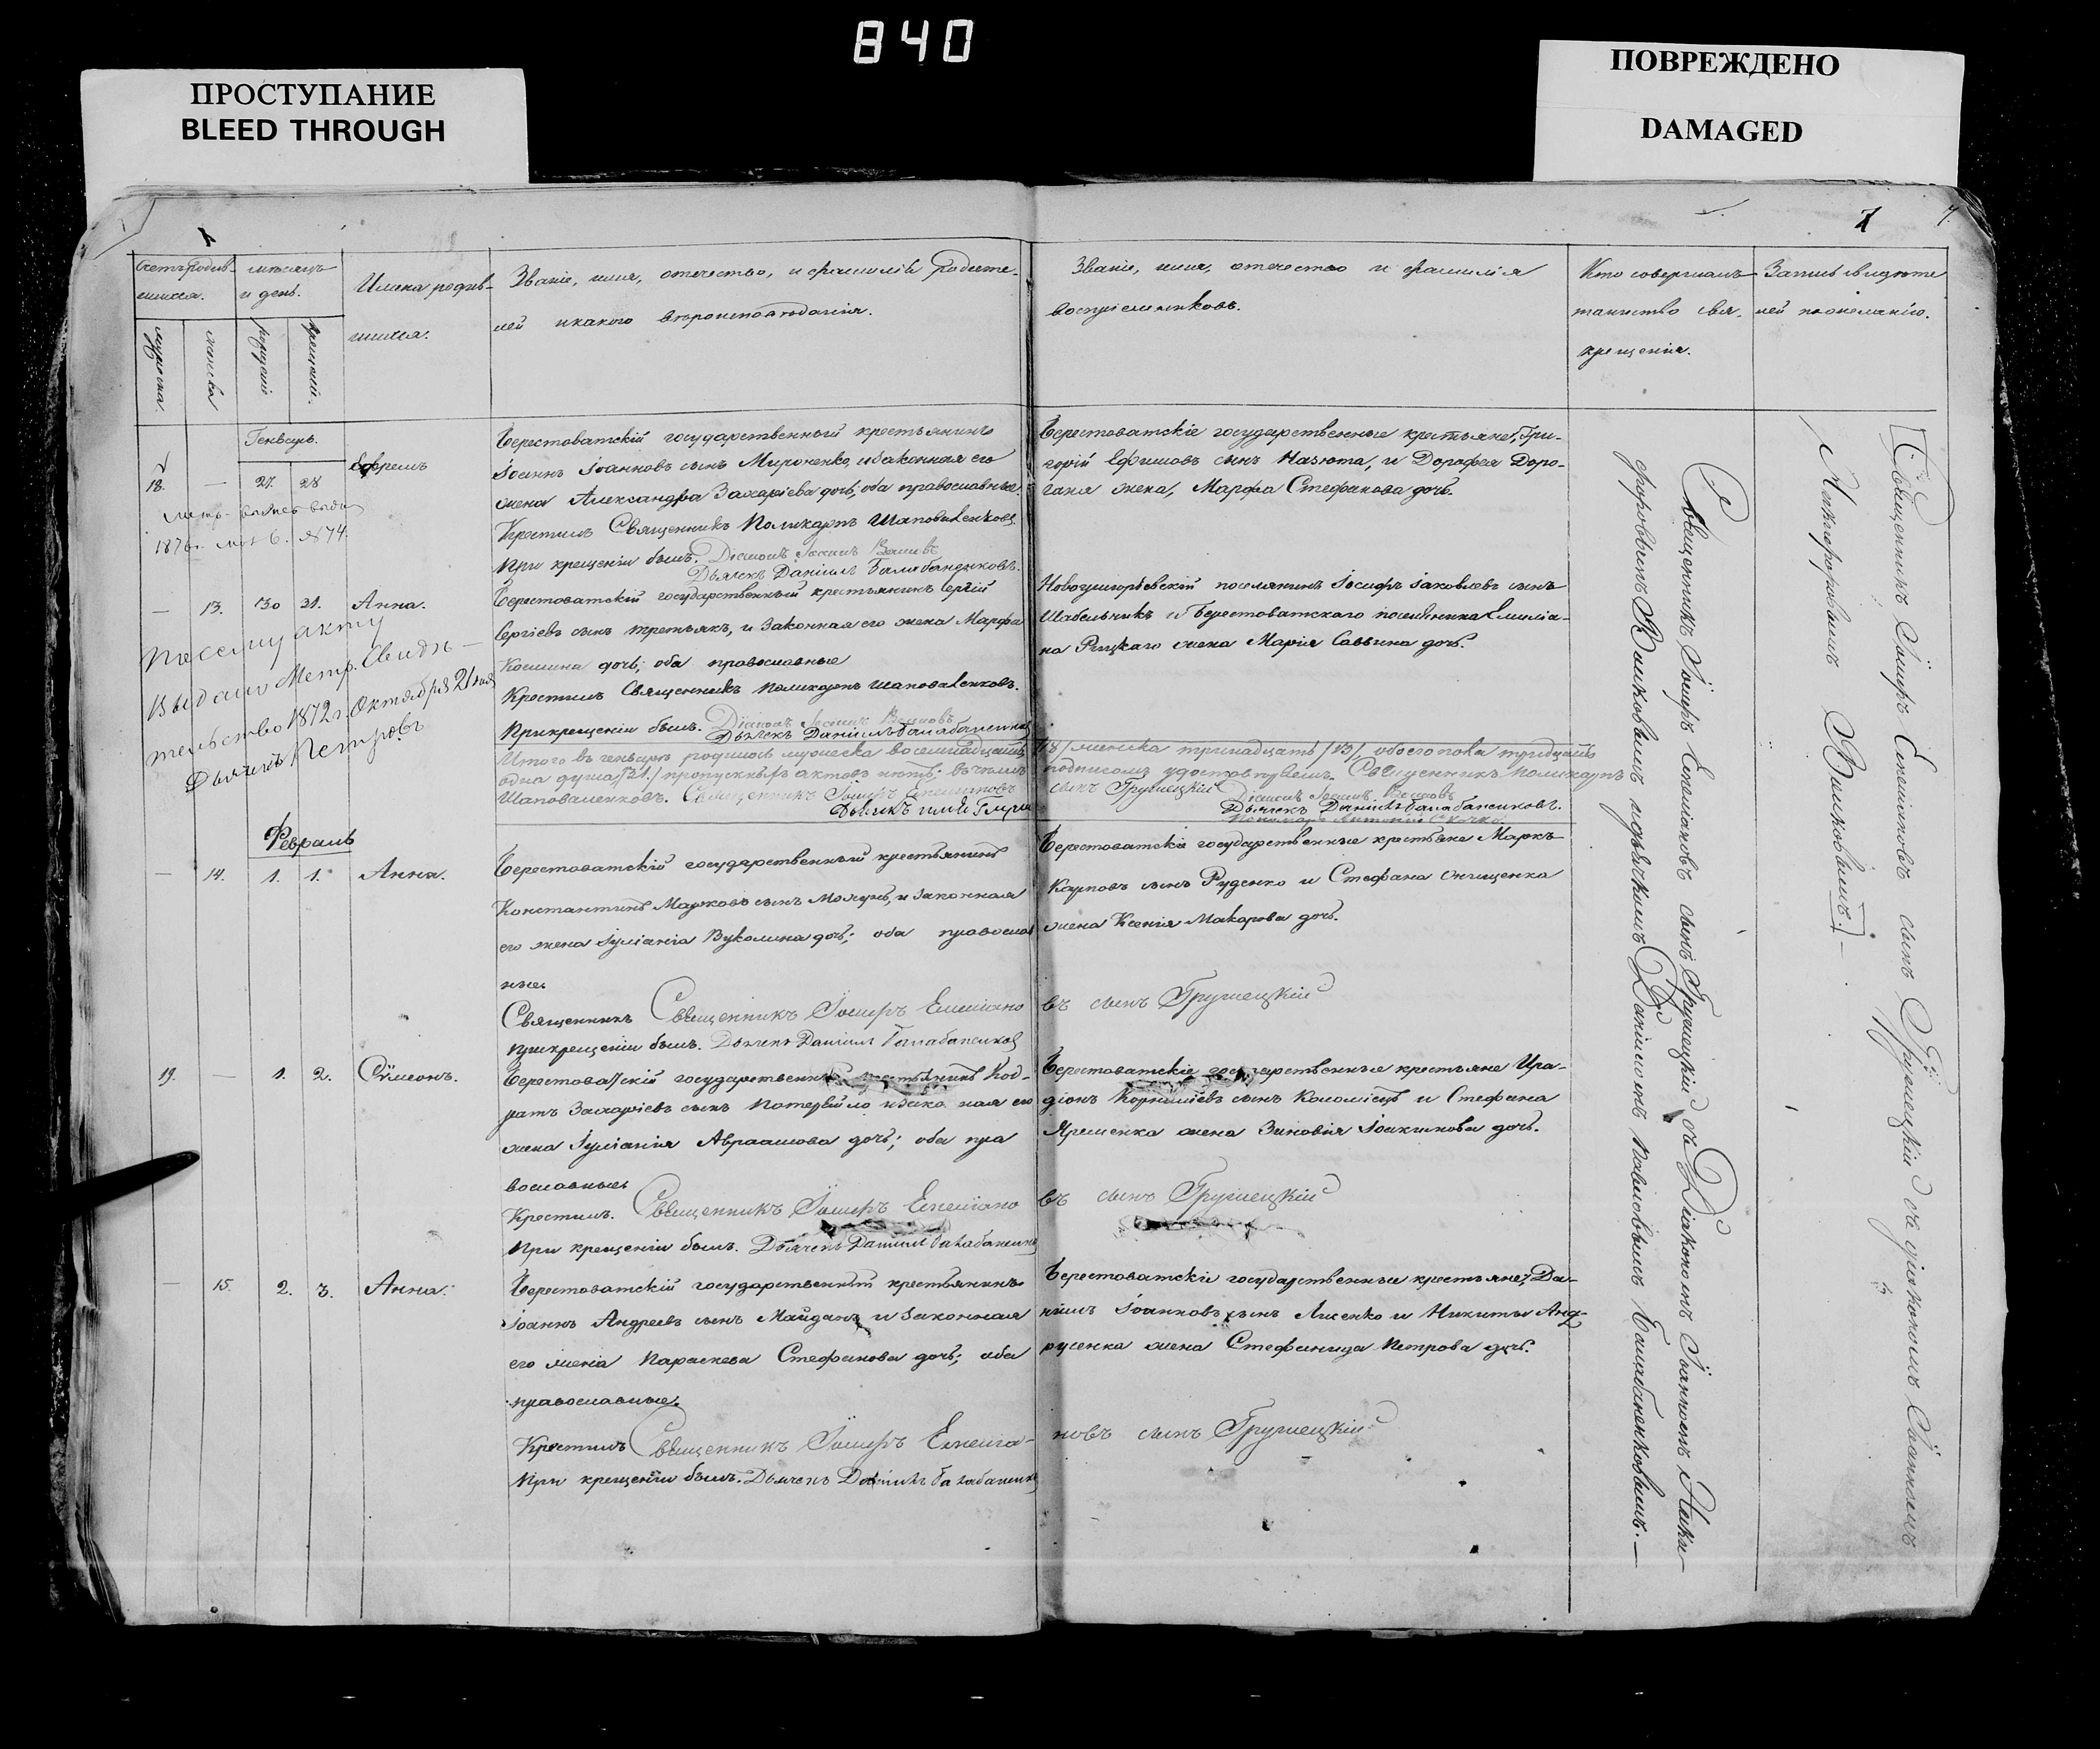 840
ПРОСТУПАНИЕ
BLEED THROUGH
ПОВРЕЖДЕНО
DAMAGED
7
7.
Счетъ родив-
шихся.
мѣсяцъ
и день.
Имена родив-
шихся.
Званіе, имя, отечество, и фамилія родите-
лей и какого вѣроисповѣданія.
Званіе, имя, отечество и фамилія
воспріемниковъ.
Кто совершалъ
таинство свя.
крещенія.
Запись свидѣте
лей по желанію.
мужеска.
женска
рожденія
крещенія.
Генварь.
18. — 27. 28
Ефремъ
Берестоватскій государственный крестьянинъ
Іоаннъ Іоанновъ сынъ Мироненко, и законная его
жена Александра Захаріева дочь; оба православные.
Крестилъ Священникъ Поликарпъ Шаповаленковъ
При крещеніи былъ. Діаконъ Іоаннъ
Дьячекъ Даніилъ Балабаненковъ.
Берестоватскіе государственные крестьяне, Гри-
горій Ефимовъ сынъ Назюта, и Дорофея Доро-
ганя жена, Марфа Стефанова дочь.
1876г. 6. №74.
— 13. 30 31. Анна.
Берестоватскій государственный крестьянинъ Сергій
Сергіевъ сынъ Третьякъ, и законная его жена Марфа
Космина дочь; оба православные
Крестилъ Священникъ Поликарпъ Шаповаленковъ.
При крещеніи былъ. Діаконъ Іоаннъ
Дьячекъ Даніилъ Балабаненковъ
поселянинъ Іосифъ Іаковлевъ сынъ
Шабельникъ и Берестоватскаго поселянина Емиліа-
на Рицкаго жена Марія Саввина дочь.
По сему акту
выдано Метр. Свидѣ-
тельство 1872 г. Октября 21 дня
Дьячекъ Петровъ
Итого въ генварѣ родилось мужеска восемнадцать /18/ женска тринадцать /13/, обоего пола тридцать
одна душа /31./ пропускныхъ актовъ нѣтъ; въ чемъ подписомъ удостовѣряемъ. Священникъ Поликарпъ
Шаповаленковъ. Священникъ Іосифъ Емеліановъ сынъ Грушецкій
Дьячекъ Даніилъ Балабаненковъ.
Февраль
— 14. 1. 1. Анна.
Берестоватскій государственный крестьянинъ
Константинъ Марковъ сынъ Мокунъ, и законная
его жена Іуліанія Вуколина дочь; оба православ
ные.
Священникъ Священникъ Іосифъ Емеліано въ сынъ Грушецкій
При крещеніи былъ. Дьячекъ Даніилъ Балабаненков
Берестоватскіе государственные крестьяне Маркъ
Карповъ сынъ Руденко и Стефана Онищенка
жена Ксенія Макарова дочь.
19. — 1. 2. Сѵмеонъ.
Берестоватскій государственный крестьянинъ Код-
ратъ Захаріевъ сынъ и законная его
жена Іуліанія Авраамова дочь; оба пра
вославные.
Крестилъ. Священникъ Іосифъ Емеліано въ сынъ Грушецкій
При крещеніи былъ. Дьячекъ Даніилъ Балабаненк
Берестоватскіе государственные крестьяне Ира-
діонъ Корниліевъ сынъ Коломіецъ и Стефана
Яременка жена Зиновія Іоакимова дочь.
— 15. 2. 3. Анна.
Берестоватскій государственный крестьянинъ
Іоаннъ Андреевъ сынъ Майданъ и законная
его жена Параскева Стефанова дочь; оба
православные.
Крестилъ Священникъ Іосифъ Емеліа- новъ сынъ Грушецкій
При крещеніи былъ. Дьячекъ Даніилъ Балабаненк
Берестоватскіе государственные крестьяне, Да-
ніилъ Іоанновъ сынъ Лисенко и Никиты Анд-
русенка жена Стефанида Петрова дочь.
Священникъ, Іосифъ Емеліановъ сынъ Грушецкій съ Діакономъ Іоанномъ Ники-
форовымъ и дьячкомъ Даніиломъ Павловымъ Балабаненковымъ.—
Священникъ Іосифъ Емеліановъ сынъ Грушецкій съ діакономъ Іоанномъ
Никифоровымъ